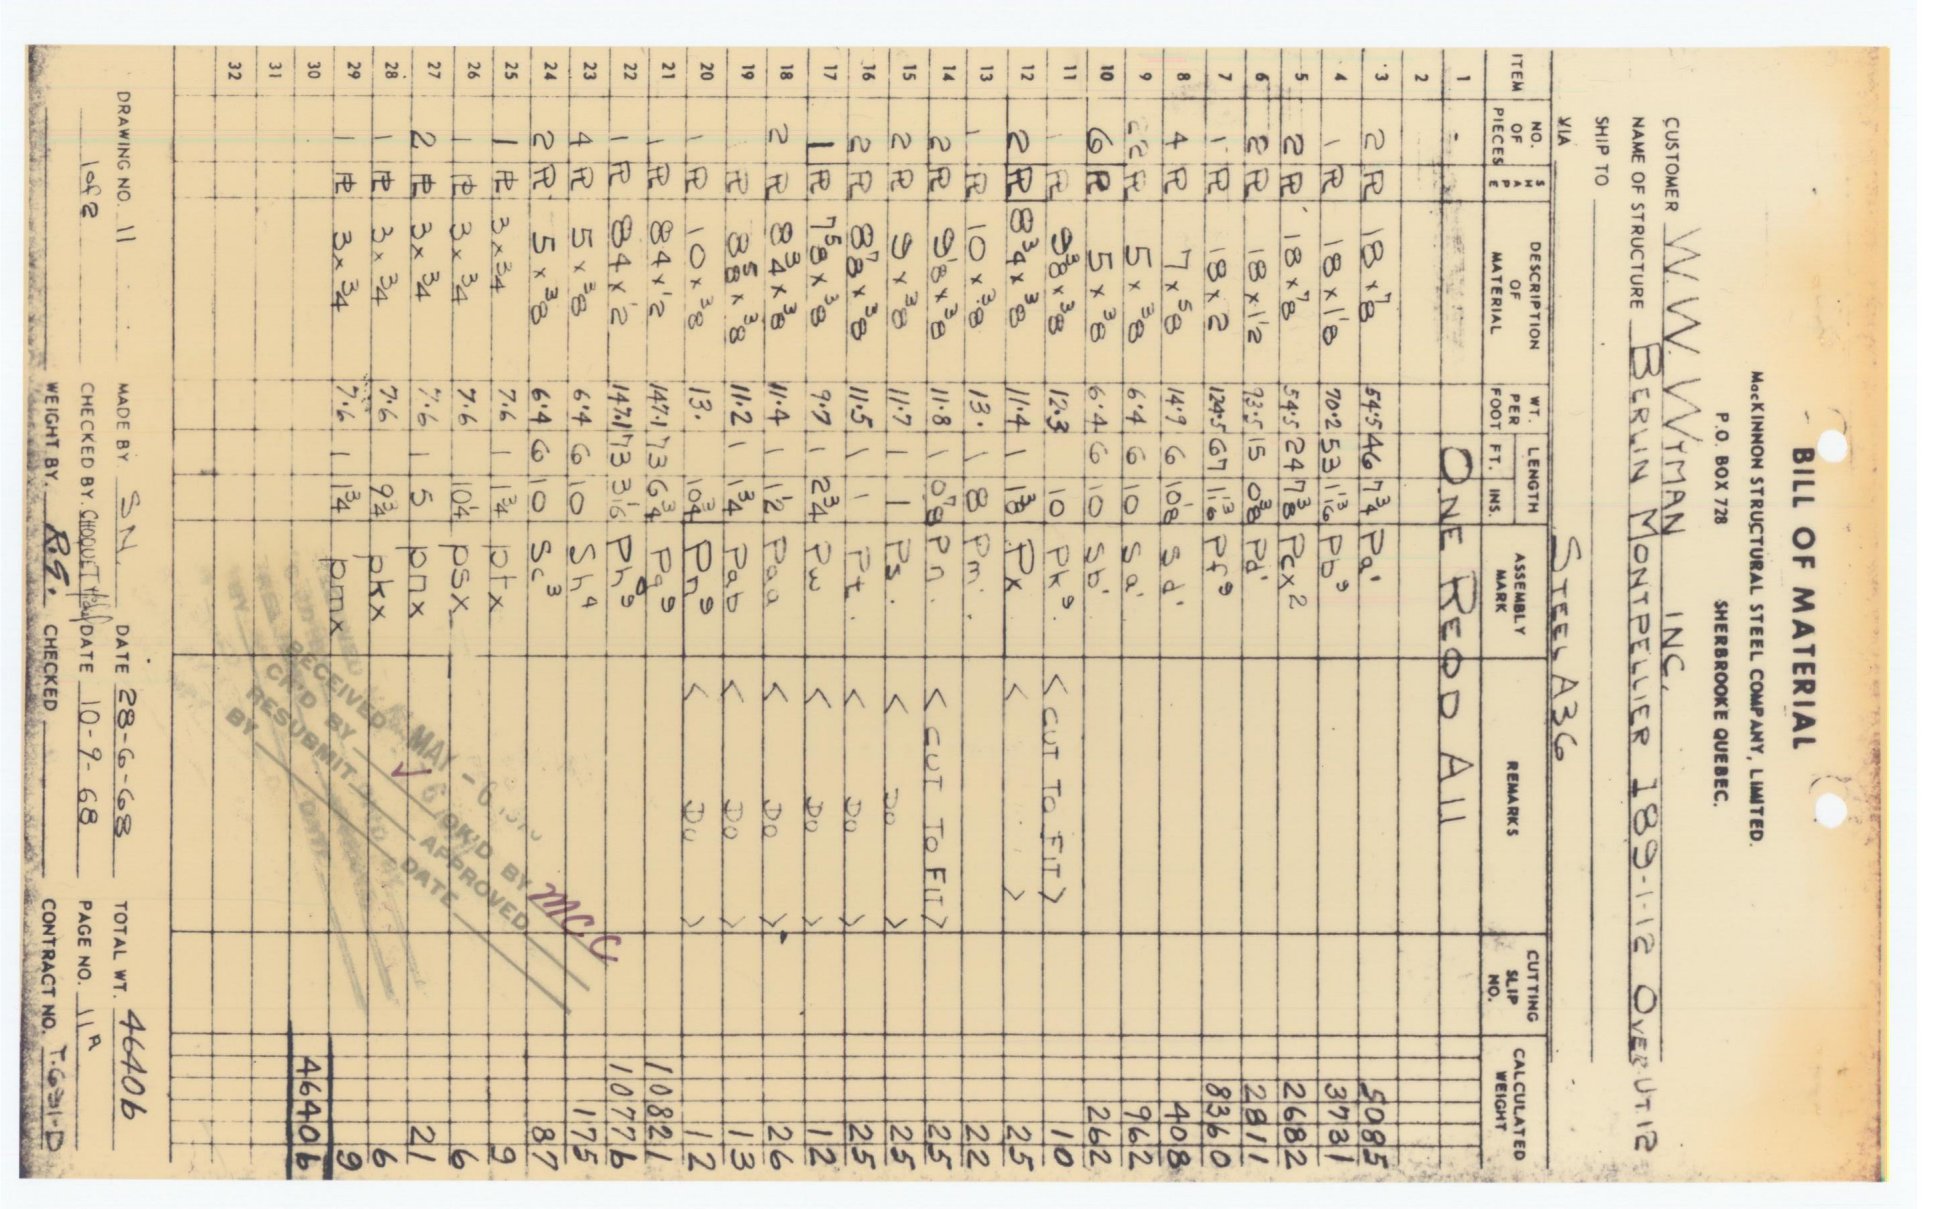 BILL OF MATERIAL
McKINNON STRUCTURAL STEEL COMPANY, LIMITED.
P.O. BOX 728 SHERBROOKE QUEBEC.
CUSTOMER W. W. WYMAN INC.
NAME OF STRUCTURE BERLIN MONTPELLIER 189-1-12 OVER UT12
SHIP TO
VIA STEEL A36
ITEM NO. OF PIECES SHAPE DESCRIPTION OF MATERIAL WT. PER FOOT LENGTH FT. INS. ASSEMBLY MARK REMARKS CUTTING SLIP NO. CALCULATED WEIGHT
1 ONE REQD ALL
2
3 2 PL 18 x 7/8 54.5 46 7 3/4 Pa' 5085
4 1 PL 18 x 1 1/8 70.2 53 1 13/16 Pb9 3731
5 2 PL 18 x 7/8 54.5 24 7 3/8 Pcx2 2682
6 2 PL 18 x 1 1/2 93.5 15 0 3/8 Pd' 2811
7 1 PL 18 x 2 124.5 67 1 13/16 Pf9 8360
8 4 PL 7 x 5/8 14.9 6 10 1/8 Sd' 408
9 22 PL 5 x 3/8 6.4 6 10 Sa' 962
10 6 PL 5 x 3/8 6.4 6 10 Sb' 262
11 1 PL 9 3/8 x 3/8 12.3 10 Pk9 < CUT TO FIT > 10
12 2 PL 8 3/4 x 3/8 11.4 1 1 3/8 Px < > 25
13 1 PL 10 x 3/8 13. 1 8 Pm' 22
14 2 PL 9 1/8 x 3/8 11.8 1 0 7/8 Pn. < CUT TO FIT > 25
15 2 PL 9 x 3/8 11.7 1 1 Ps. < DO > 25
16 2 PL 8 7/8 x 3/8 11.5 1 1 Pt. < DO > 25
17 1 PL 7 5/8 x 3/8 9.7 1 2 3/4 Pw < DO > 12
18 2 PL 8 3/4 x 3/8 11.4 1 1 1/2 Paa < DO > 26
19 1 PL 8 5/8 x 3/8 11.2 1 1 3/4 Pab < DO > 13
20 1 PL 10 x 3/8 13. 10 3/4 Pn9 < DO > 12
21 1 PL 84 x 1/2 147.1 73 6 3/4 Pg9 10821
22 1 PL 84 x 1/2 147.1 73 3 1/16 Ph9 10776
23 4 PL 5 x 3/8 6.4 6 10 Sh4 175
24 2 PL 5 x 3/8 6.4 6 10 Sc3 87
25 1 PL 3 x 3/4 7.6 1 1 3/4 ptx 9
26 1 PL 3 x 3/4 7.6 10 1/4 psx 6
27 2 PL 3 x 3/4 7.6 1 5 pnx 21
28 1 PL 3 x 3/4 7.6 9 3/4 pkx 6
29 1 PL 3 x 3/4 7.6 1 1 3/4 pmx 9
30 46406
31
32
RECEIVED MAY - 6 1970
CK'D BY OK'D BY MCC
RESUBMIT APPROVED
BY DATE
DRAWING NO. 11 MADE BY. S.N. DATE 28-6-68 TOTAL WT. 46406
1 of 2 CHECKED BY. CHOQUETTE DATE 10-9-68 PAGE NO. 11 A
WEIGHT BY. R.G. CHECKED CONTRACT NO. T.G31-D